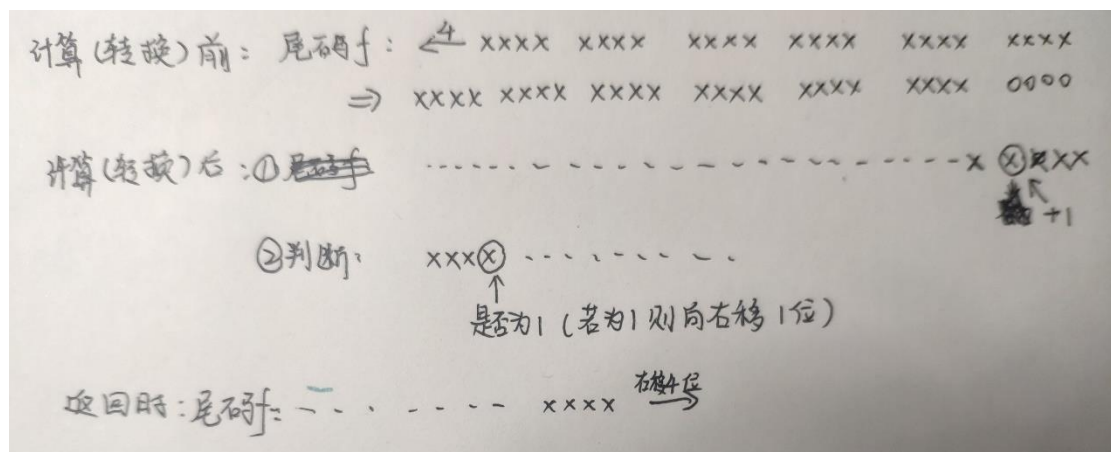 计算(转换)前: 尾码f: ←4 xxxx xxxx xxxx xxxx xxxx xxxx
⇒ xxxx xxxx xxxx xxxx xxxx xxxx 0000
计算(转换)后:① x ⓧxxx
+1
②判断: xxxⓧ
↑
是否为1(若为1则向右移1位)
返回时:尾码f: xxxx 右移4位→